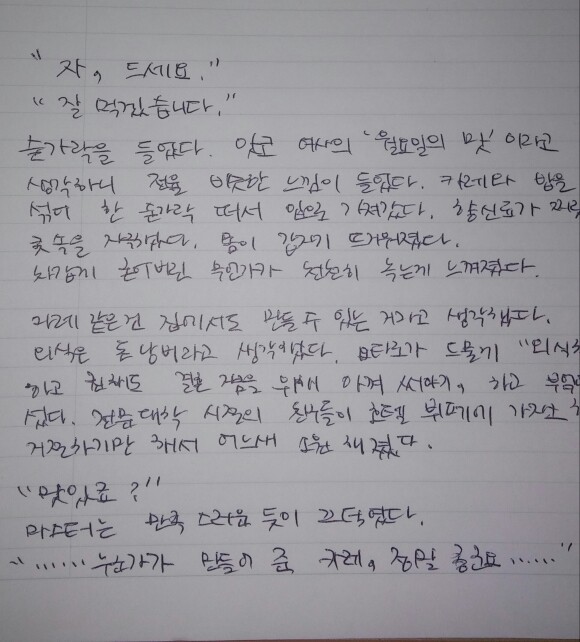 "자, 드세요."
"잘 먹겠습니다."
숟가락을 들었다. 앗코 여사의 '월요일의 맛'이라고
생각하니 전율 비슷한 느낌이 들었다. 카레와 밥을
섞어 한 숟가락 떠서 입으로 가져갔다. 향신료가
콧속을 자극했다. 몸이 갑자기 뜨거워졌다.
차갑게 얼어버린 무언가가 천천히 녹는게 느껴졌다.
카레 같은건 집에서도 만들 수 있는 거라고 생각했다.
외식은 돈 낭비라고 생각했었다. 드물게 "외식
하고 결혼 자금을 위해 아껴 써야지, 하고
섰다. 전문대학 시절의 친구들이 호텔 뷔페에 가자고
거절하기만 해서 어느새 소원해졌다.
"맛있죠?"
마스터는 만족스러운 듯이 끄덕였다.
"……누군가가 만들어 준 카레, 정말 좋군요……"